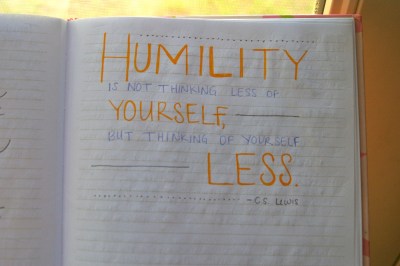 HUMILITY
IS NOT THINKING LESS OF
YOURSELF,
BUT THINKING OF YOURSELF
LESS.
-C.S. LEWIS